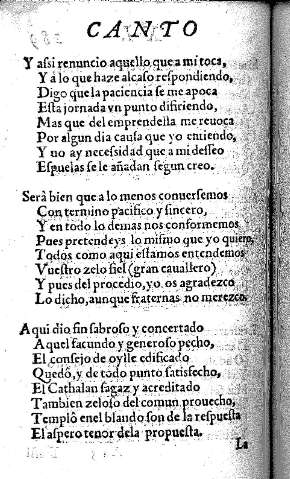 CANTO
Y assi renuncio aquello que a mi toca,
Y á lo que haze al caso respondiendo,
Digo que la paciencia se me apoca
Esta jornada vn punto difiriendo,
Mas que del emprendella me reuoca
Por algun dia causa que yo entiendo,
Y no ay necessidad que a mi desseo
Espuelas se le añadan segun creo.
Serà bien que a lo menos conuersemos
Con termino pacifico y sincero,
Y en todo lo demas nos conformemos
Pues pretendeys lo mismo que yo quiero,
Todos como aqui estamos entendemos
Vuestro zelo fiel (gran cauallero)
Y pues del procedio, yo os agradezco
Lo dicho, aunque fraternas no merezco.
Aqui dio fin sabroso y concertado
Aquel facundo y generoso pecho,
El consejo de oylle edificado
Quedô, y de todo punto satisfecho,
El Cathalan sagaz y acreditado
Tambien zeloso del comun prouecho,
Templô en el blando son de la respuesta
El aspero tenor dela propuesta.
La